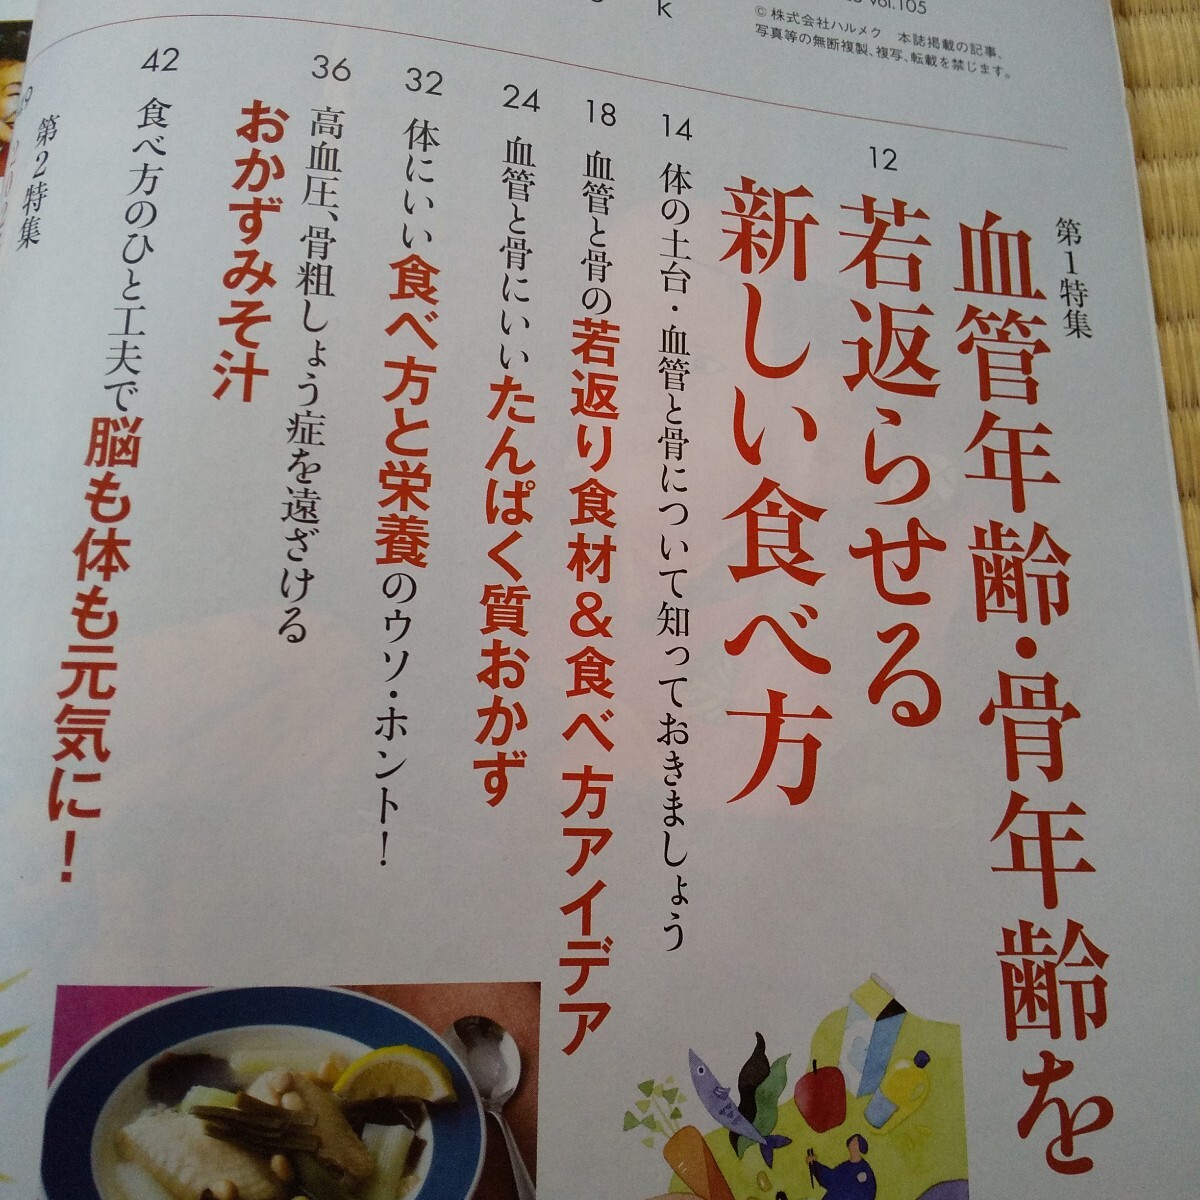 vol.105
© 株式会社ハルメク 本誌掲載の記事、
写真等の無断複製、複写、転載を禁じます。
k
第1特集
血管年齢・骨年齢を
12
若返らせる
新しい食べ方
14
体の土台・血管と骨について知っておきましょう
18
血管と骨の若返り食材&食べ方アイデア
24
血管と骨にいいたんぱく質おかず
32
体にいい食べ方と栄養のウソ・ホント!
36
高血圧、骨粗しょう症を遠ざける
おかずみそ汁
42
食べ方のひと工夫で脳も体も元気に!
第2特集